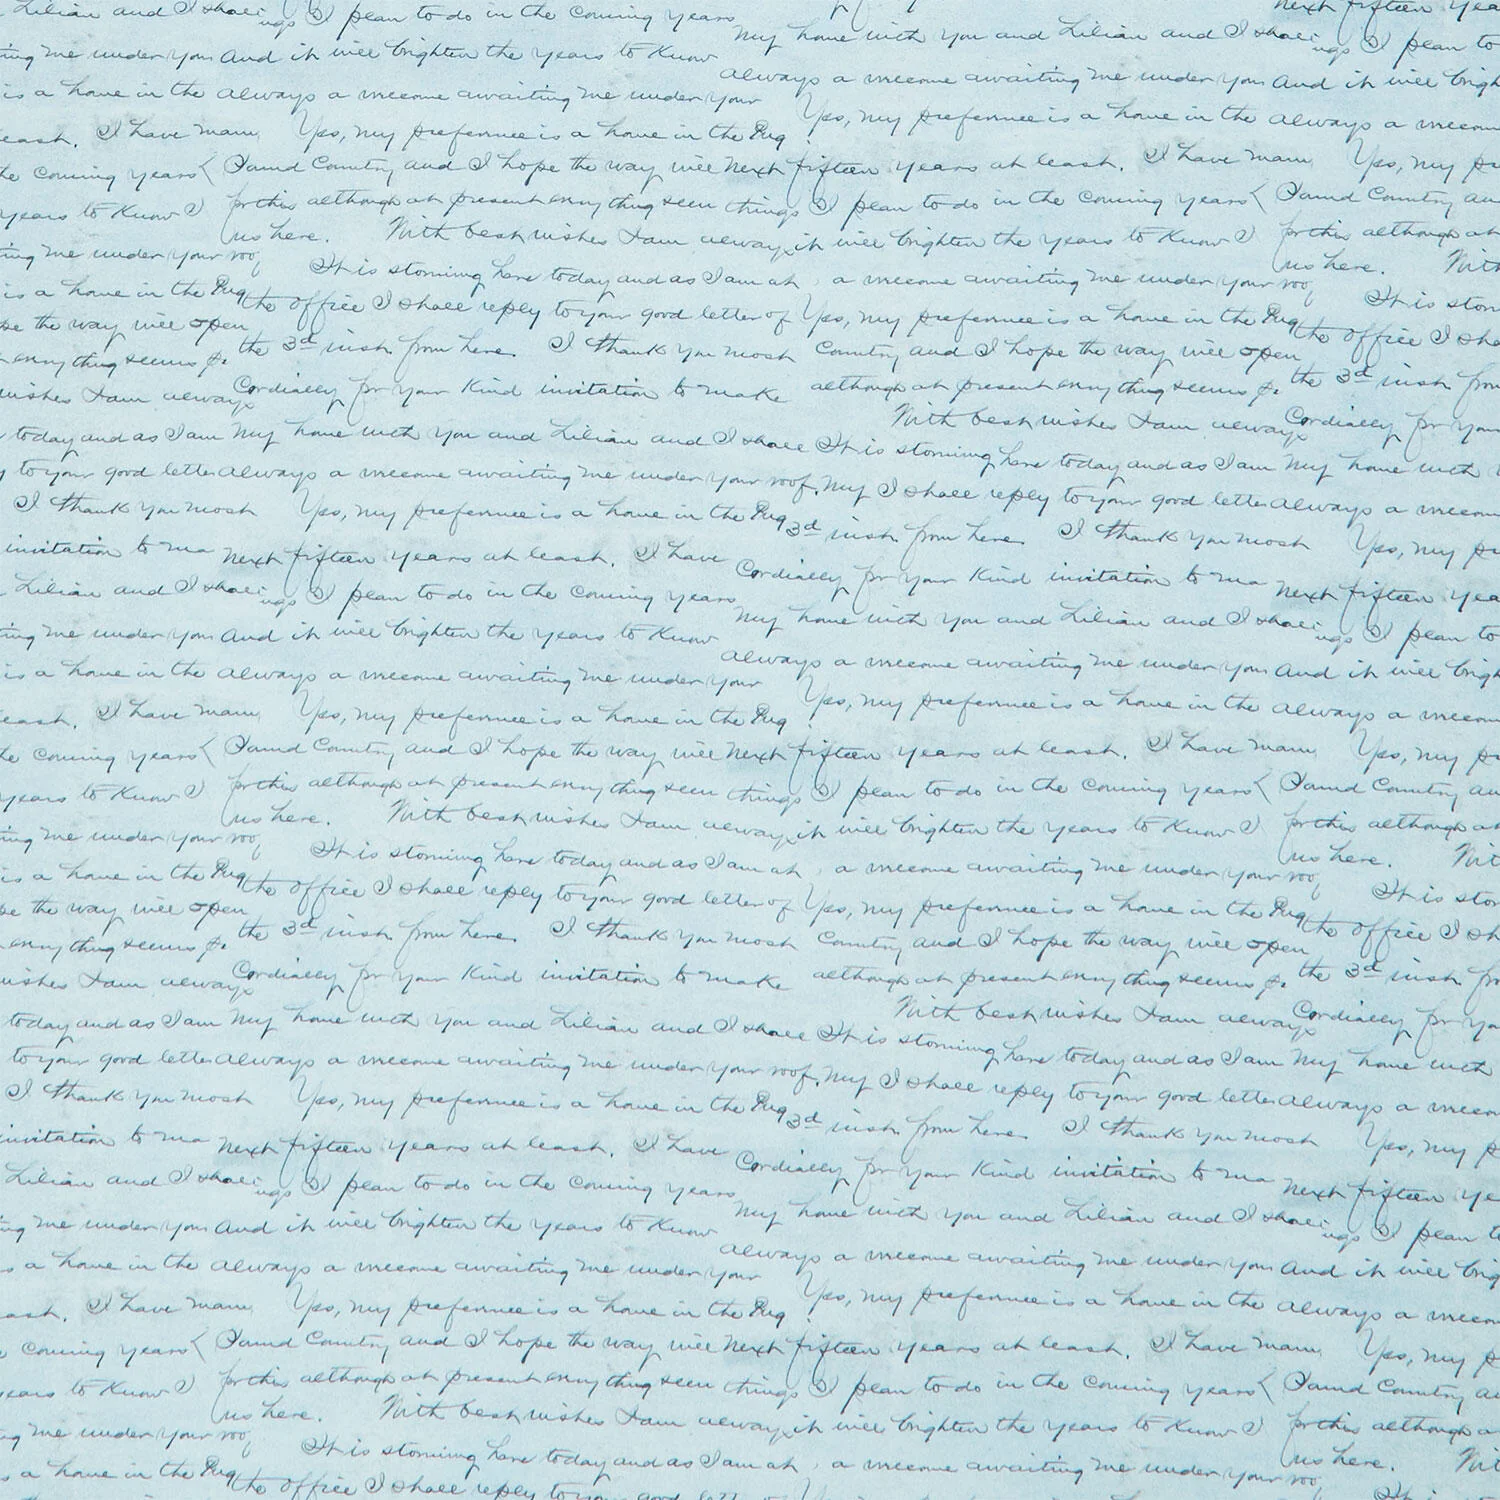 Lilian and I shall ings I plan to do in the coming years
My home with you and Lilian and I shall ings I plan to
ing me under you And it will brighten the years to know
always a welcome awaiting me under you And it will brigh
is a home in the always a welcome awaiting me under your
Yes, my preference is a home in the always a welcome
least. I have many Yes, my preference is a home in the Pug
the coming years Sound Country and I hope the way will next fifteen years at least. I have many Yes, my pr
years to know I for this although at present everything seem things I plan to do in the coming years Sound Country an
us here. With best wishes I am always it will brighten the years to know I for this although at
ing me under your roof It is storming here today and as I am at a welcome awaiting me under your roof us here. With
is a home in the Pug the office I shall reply to your good letter of Yes, my preference is a home in the Pug It is stor
pe the way will open the 3d inst. from here. I thank you most Country and I hope the way will open the office I sha
everything seems Cordially for your kind invitation to make although at present everything seems the 3d inst. from
wishes I am always With best wishes I am always Cordially for your
today and as I am My home with you and Lilian and I shall It is storming here today and as I am My home with
to your good letter always a welcome awaiting me under your roof. My I shall reply to your good letter always a welcome
I thank you most Yes, my preference is a home in the Pug 3d inst. from here. I thank you most Yes, my pr
invitation to ma next fifteen years at least. I have Cordially for your kind invitation to ma next fifteen yea
Lilian and I shall ings I plan to do in the coming years My home with you and Lilian and I shall ings I plan to
ing me under you And it will brighten the years to know always a welcome awaiting me under you And it will brigh
is a home in the always a welcome awaiting me under your Yes, my preference is a home in the always a welcome
least. I have many Yes, my preference is a home in the Pug
the coming years Sound Country and I hope the way will next fifteen years at least. I have many Yes, my pr
years to know I for this although at present everything seem things I plan to do in the coming years Sound Country au
us here. With best wishes I am always it will brighten the years to know I for this although at
ing me under your roof It is storming here today and as I am at a welcome awaiting me under your roof us here. Wit
is a home in the Pug the office I shall reply to your good letter of Yes, my preference is a home in the Pug It is stor
pe the way will open the 3d inst. from here. I thank you most Country and I hope the way will open the office I sh
everything seems Cordially for your kind invitation to make although at present everything seems the 3d inst. fro
wishes I am always With best wishes I am always Cordially for yo
today and as I am My home with you and Lilian and I shall It is storming here today and as I am My home with
to your good letter always a welcome awaiting me under your roof. My I shall reply to your good letter always a welcom
I thank you most Yes, my preference is a home in the Pug 3d inst. from here. I thank you most Yes, my p
invitation to ma next fifteen years at least. I have Cordially for your kind invitation to ma next fifteen ye
Lilian and I shall ings I plan to do in the coming years My home with you and Lilian and I shall ings I plan t
ing me under you And it will brighten the years to know always a welcome awaiting me under you And it will brig
is a home in the always a welcome awaiting me under your Yes, my preference is a home in the always a welcom
east. I have many Yes, my preference is a home in the Pug
coming years Sound Country and I hope the way will next fifteen years at least. I have many Yes, my p
years to know I for this although at present everything seem things I plan to do in the coming years Sound Country a
us here. With best wishes I am always it will brighten the years to know I for this although a
ng me under your roof It is storming here today and as I am at a welcome awaiting me under your roof us here. Wit
a home in the Pug the office I shall reply to your good letter